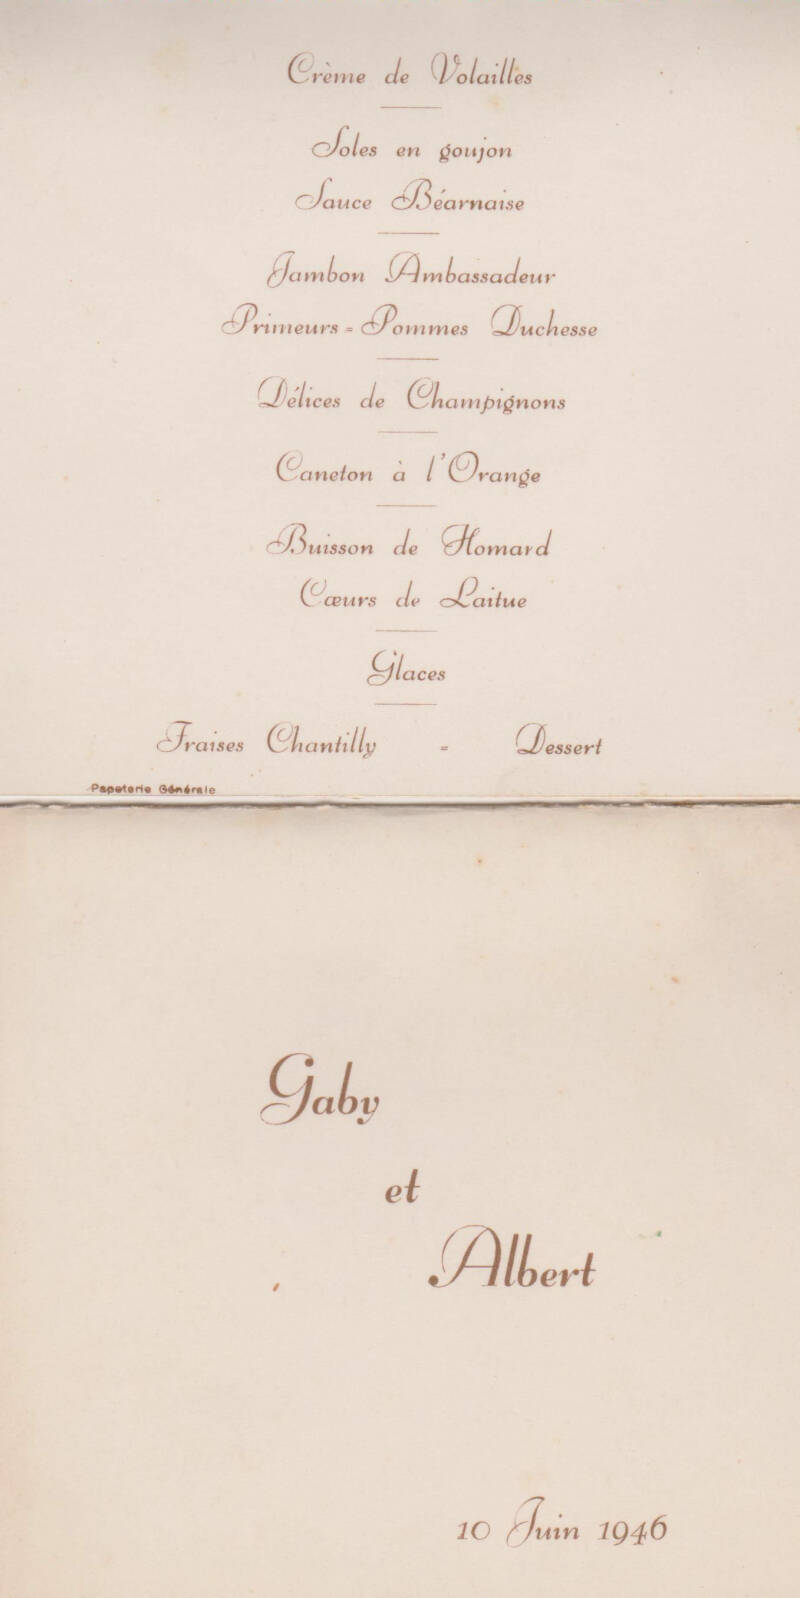 Crème de Volailles
Soles en goujon
Sauce Béarnaise
Jambon Ambassadeur
Primeurs = Pommes Duchesse
Délices de Champignons
Caneton à l'Orange
Buisson de Homard
Cœurs de Laitue
Glaces
Fraises Chantilly = Dessert
Papeterie Générale
Gaby
et
Albert
10 Juin 1946